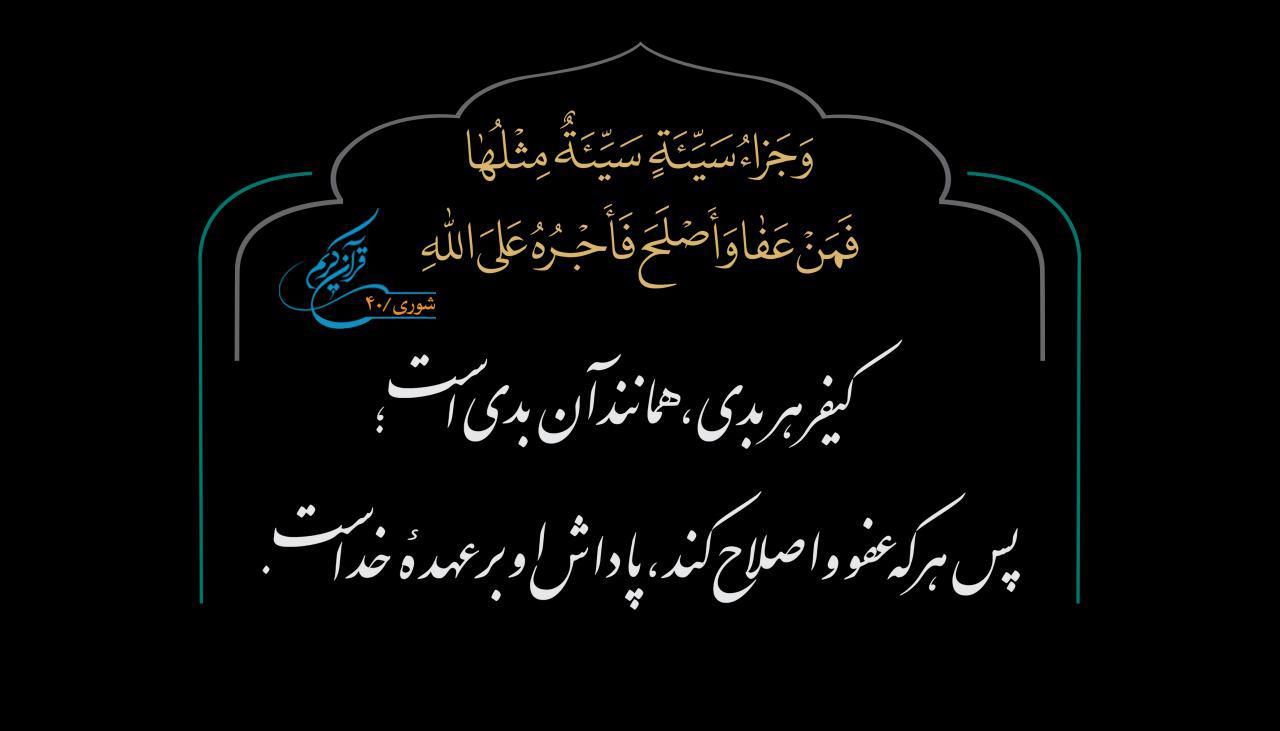 وَجَزَاءُ سَيِّئَةٍ سَيِّئَةٌ مِثْلُهَا
فَمَنْ عَفَا وَأَصْلَحَ فَأَجْرُهُ عَلَى اللَّهِ
قرآن کریم
شوری /۴۰
کیفر هر بدی، همانند آن بدی است؛
پس هر که عفو و اصلاح کند، پاداش او بر عهدهٔ خداست.